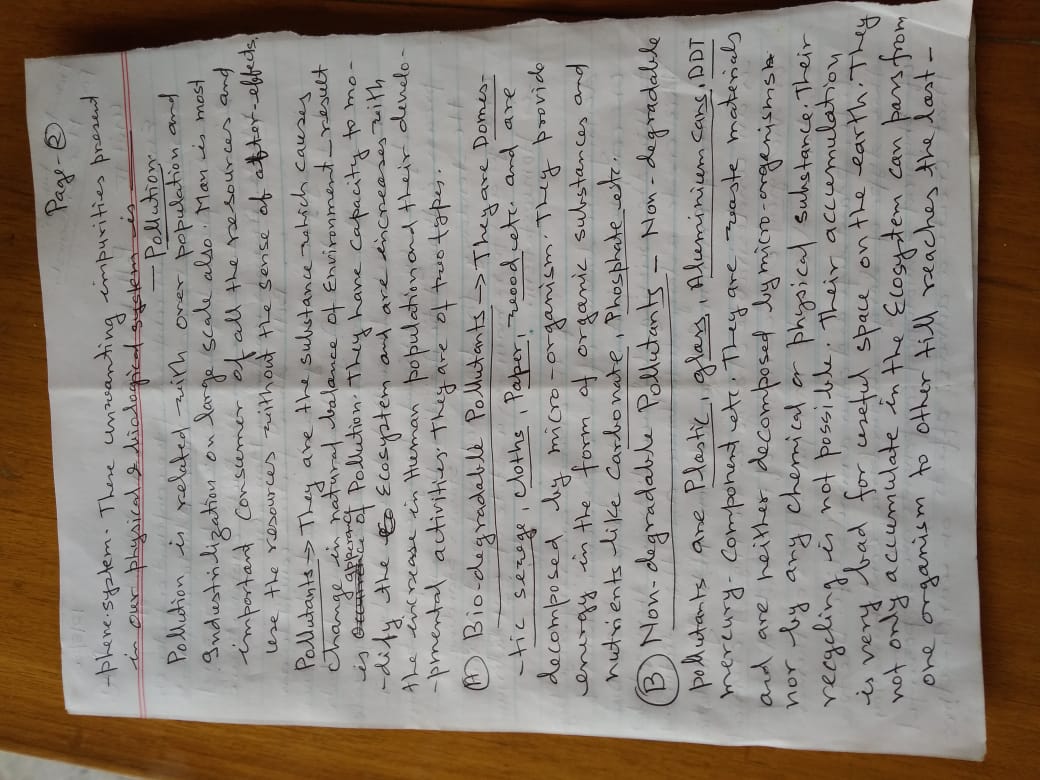 Page-②
-sphere.system. These unwanting impurities present
in our physical & biological system is
Pollution
Pollution is related with over population and
Industrilization on large scale also. Man is most
important Consumer of all the resources and
use the resources without the sense of after-effects.
Pollutants → They are the substance which causes
change in natural balance of Environment - result
is apperance of Pollution. They have capacity to mo-
-dify the Ecosystem and are increases with
the increase in Human population and their develo-
-pmental activities. They are of two types.
(A) Bio-degradable Pollutants → They are Domes-
-tic sewage, cloths, Paper, wood etc. and are
decomposed by micro-organism. They provide
energy in the form of organic substances and
nutrients like Carbonate, Phosphate etc.
(B) Non-degradable Pollutants - Non-degradable
pollutants are Plastic, glass, Aluminium cans, DDT
mercury- Component etc. They are waste materials
and are neither decomposed by micro-organisms
nor by any chemical or physical substance. Their
recycling is not possible. Their accumulation
is very bad for useful space on the earth. They
not only accumulate in the Ecosystem can pass from
one organism to other till reaches the last -